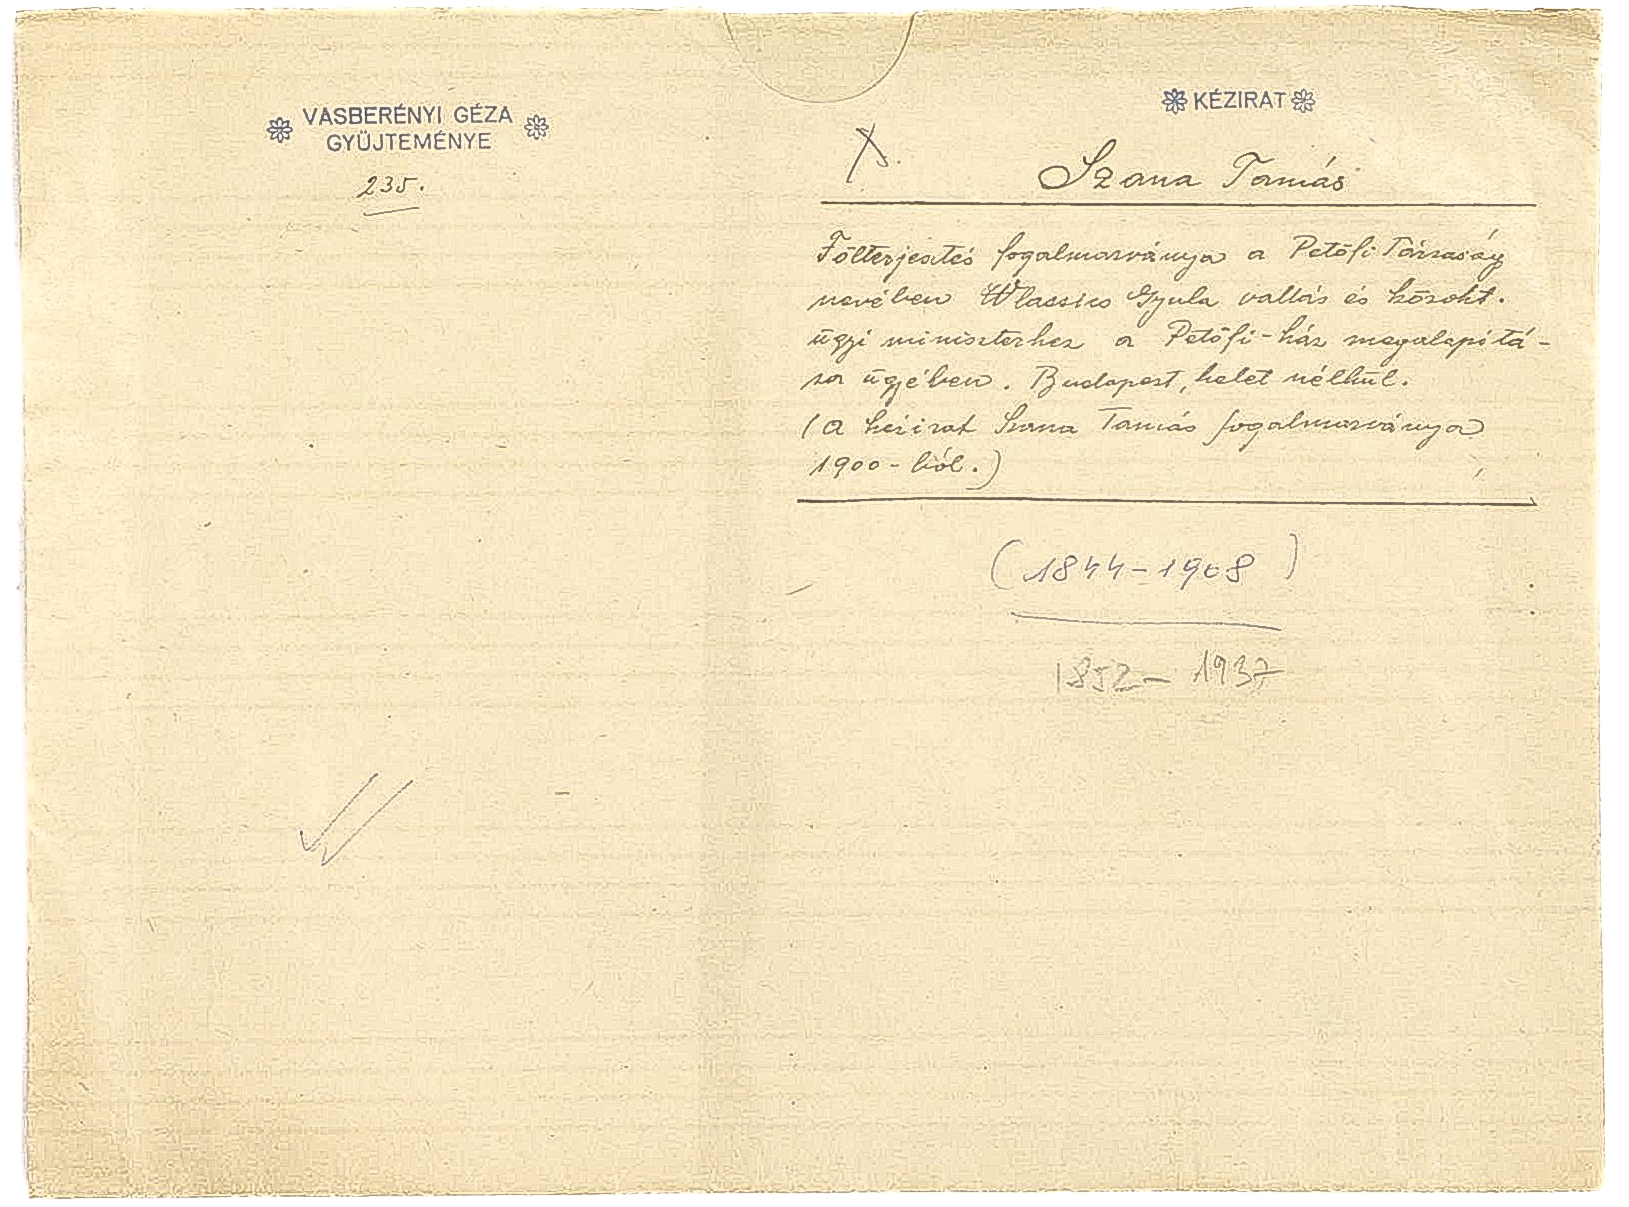 VASBERÉNYI GÉZA
GYÜJTEMÉNYE
235.
KÉZIRAT
Szana Tamás
Fölterjesztés fogalmazványa a Petőfi Társaság
nevében Wlassics Gyula vallás és közokt.
ügyi miniszterhez a Petőfi-ház megalapítá-
sa ügyében. Budapest, kelet nélkül.
(A kézirat Szana Tamás fogalmazványa
1900-ból.)
(1844-1908)
1852-1937